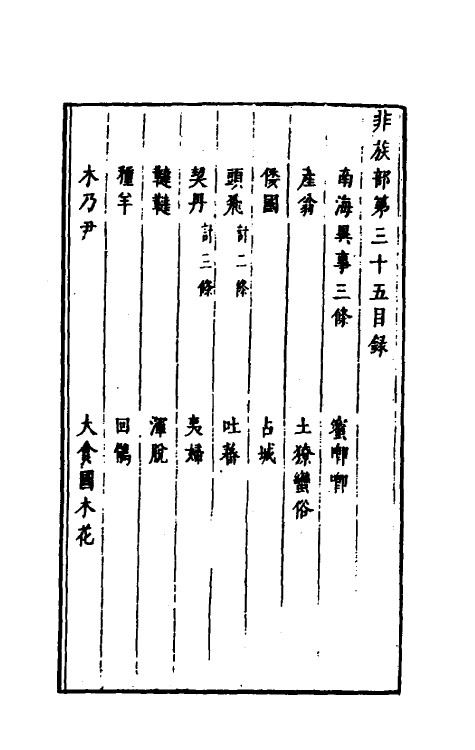 非族部第三十五目録
南海異事三條
蜜唧唧
產翁
土獠蠻俗
倭國
占城
頭飛計二條
吐蕃
契丹計三條
夷婦
韃靼
渾脫
種羊
回鶻
木乃尹
大食國木花